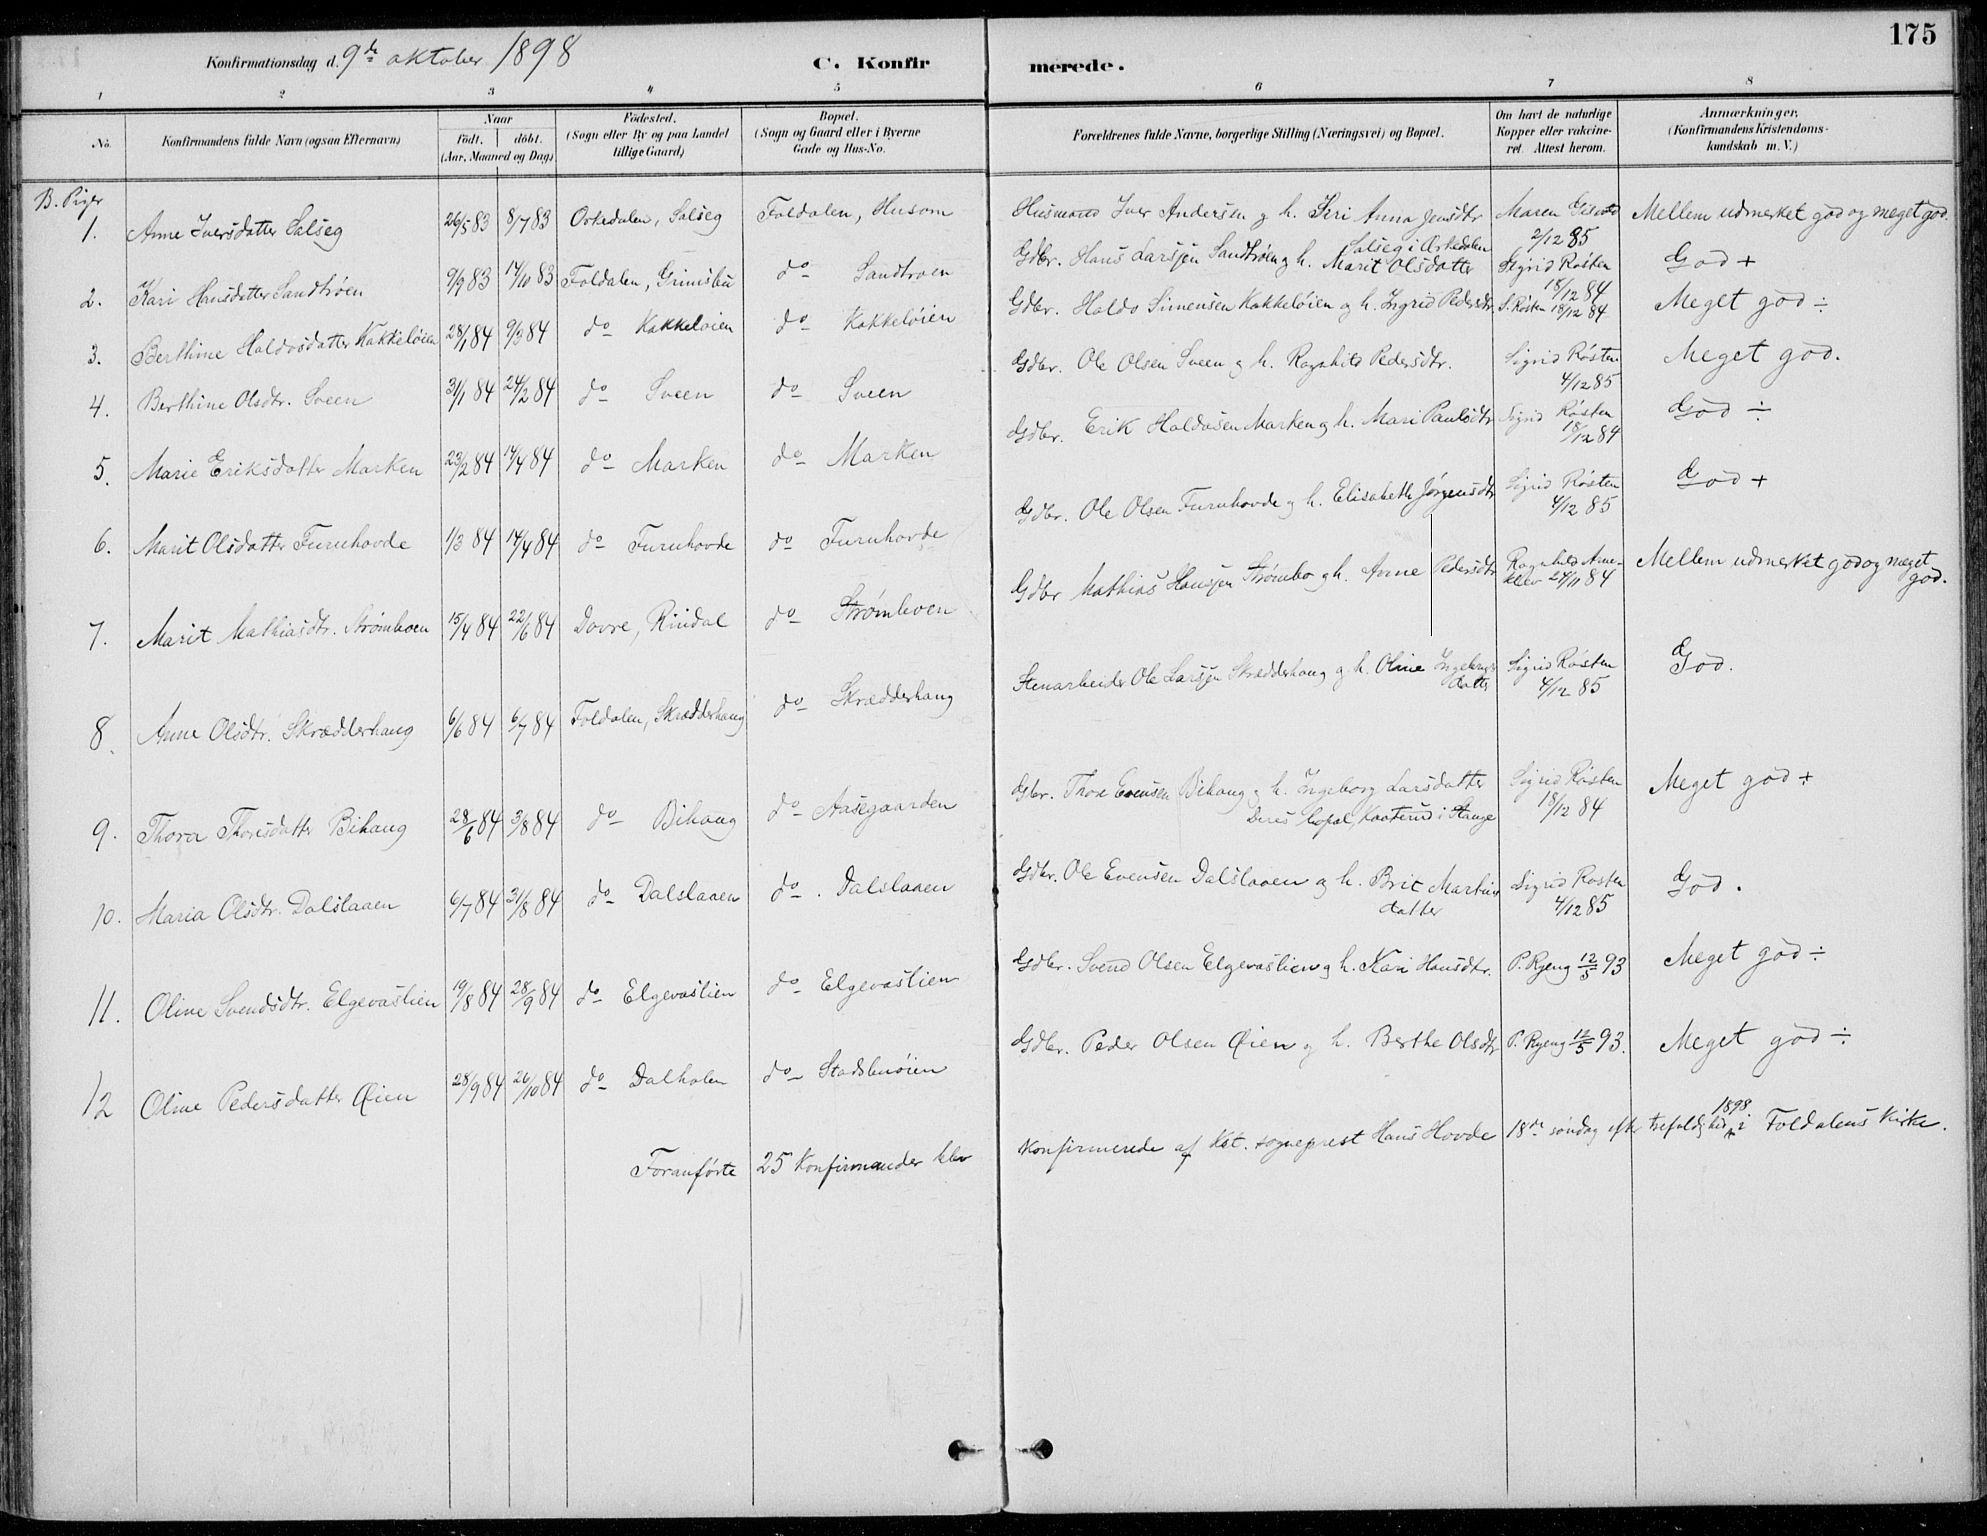 175
Konfirmationsdag d. 9de oktober 1898 C. Konfirmerede.
1 2 3 4 5 6 7 8
No. Konfirmandens fulde Navn (ogsaa Efternavn) Naar født. døbt. (Aar, Maaned og Dag) Fødested. (Sogn eller By og paa Landet tillige Gaard) Bopæl. (Sogn og Gaard eller i Byerne Gade og Hus-No. Forældrenes fulde Navne, borgerlige Stilling (Næringsvei) og Bopæl. Om havt de naturlige Kopper eller vakcineret. Attest herom. Anmærkninger. (Konfirmandens Kristendomskundskab m. V.)
B. Piger
1. Anne Iversdatter Salseg 26/5 83 8/7 83 Orkedalen, Salseg Foldalen, Husom Husmand Iver Andersen og h. Siri Anna Jensdtr Salseg i Orkedalen Maren 2/12 85 Mellem udmerket god og meget god.
2. Kari Hansdatter Sandtrøen 9/9 83 14/10 83 Foldalen, Grimsbu do Sandtrøen Gdbr. Hans Larssen Sandtrøen og h. Marit Olsdatter Sigrid Røsten 18/12 84 God +
3. Berthine Haldosdatter Kakkeløien 28/1 84 9/3 84 do Kakkeløien do Kakkeløien Gdbr. Haldo Simensen Kakkeløien og h. Ingrid Pedersdtr. S. Røsten 18/12 84 Meget god ÷
4. Berthine Olsdtr. Sveen 31/1 84 24/2 84 do Sveen do Sveen Gdbr. Ole Olsen Sveen og h. Ragnhild Pedersdtr. Sigrid Røsten 4/12 85 Meget god.
5. Marie Eriksdatter Marken 23/2 84 14/4 84 do Marken do Marken Gdbr. Erik Haldosen Marken og h. Mari Paulsdtr Sigrid Røsten 18/12 84 God ÷
6. Marit Olsdatter Furuhovde 1/3 84 14/4 84 do Furuhovde do Furuhovde Gdbr. Ole Olsen Furuhovde og h. Elisabeth Jørgensdtr Sigrid Røsten 4/12 85 God +
7. Marit Mathiasdtr. Strømboen 15/4 84 22/6 84 Dovre, Rindal do Strømboen Gdbr Mathias Hanssen Strømbo og h. Anne Pedersdtr Ragnhild 24/11 84 Mellem udmerket god og meget god.
8. Anne Olsdtr. Skrædderhaug 6/6 84 6/7 84 Foldalen, Skrædderhaug do Skrædderhaug Stenarbeider Ole Larssen Skrædderhaug og h. Oline Ingebrigtsdatter Sigrid Røsten 4/12 85 God.
9. Thora Thoresdatter Bihaug 28/6 84 3/8 84 do Bihaug do Aasegaarden Gbr. Thore Evensen Bihaug og h. Ingeborg Larsdatter Deres Bopæl, Kaaterud i Stange Sigrid Røsten 18/12 84 Meget god +
10. Maria Olsdtr. Dalslaaen 6/7 84 31/8 84 do Dalslaaen do. Dalslaaen Gdbr. Ole Evensen Dalslaaen og h. Brit Martinsdatter Sigrid Røsten 4/12 85 God.
11. Oline Svendsdtr. Elgevaslien 19/8 84 28/9 84 do Elgevaslien do Elgevaslien Gdbr. Svend Olsen Elgevaslien og h. Kari Hansdtr. P. Ryeng 12/5 93 Meget god ÷
12 Oline Pedersdatter Øien 28/9 84 26/10 84 do Dalholen do Stadsbuøien Gdbr. Peder Olsen Øien og h. Berthe Olsdtr P. Ryeng 12/5 93. Meget god ÷
Foranførte 25 Konfirmander blev Konfirmerede af Kst. sogneprest Hans Hovde 18de søndag efter trefoldighed 1898 i Foldalens Kirke.